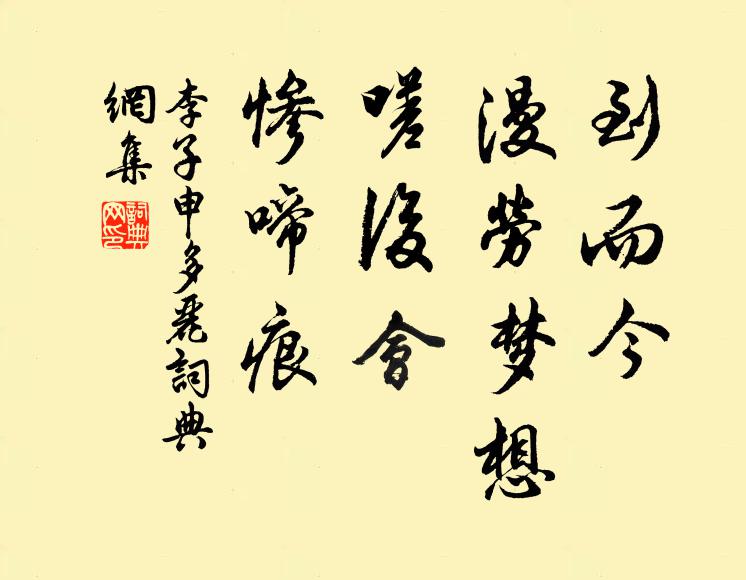 到而今
漫勞梦想
嗟後會
慘啼痕
李子申多麗詞典
網集
詞典
网印